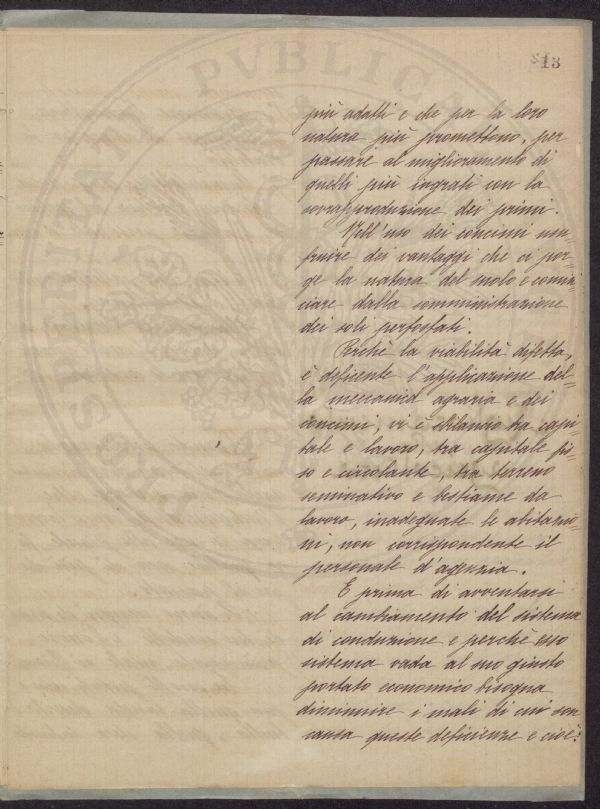 13
più adatti e che per la loro
natura più promettono, per
passare al miglioramento di
quelli più ingrati con la
sovrapproduzione dei primi.
Nell'uso dei concimi usu=
fruire dei vantaggi che ci por=
ge la natura del suolo e comin=
ciare dalla somministrazione
dei soli perfosfati.
Perchè la viabilità difetta,
è deficente l'applicazione del=
la meccanica agraria e dei
concimi, vi è sbilancio tra capi=
tale e lavoro, tra capitale fis=
so e circolante, tra terreno
seminativo e bestiame da
lavoro, inadeguate le abitazio=
ni, non corrispondente il
personale d'agenzia.
E prima di avventarsi
al cambiamento del sistema
di conduzione e perchè esso
sistema vada al suo giusto
portato economico bisogna
diminuire i mali di cui son
causa queste deficienze e cioè:
PVBLIC
PROSPERITATI